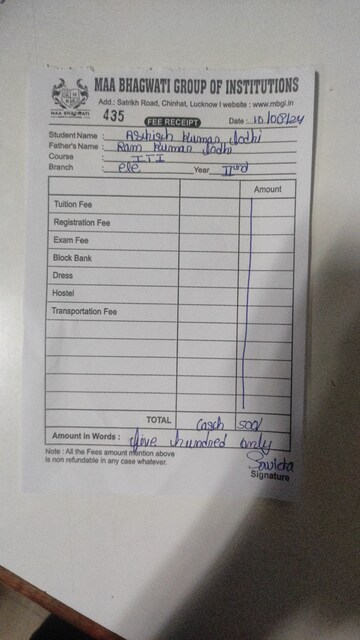 MAA BHAGWATI GROUP OF INSTITUTIONS
MAA BHAGWATI
Add.: Satrikh Road, Chinhat, Lucknow I website : www.mbgi.in
435
FEE RECEIPT
Date : 10/08/24
Student Name : Ashish Kumar Lodhi
Father's Name : Ram Kumar Lodhi
Course : ITI
Branch ele Year IInd
Amount
Tuition Fee
Registration Fee
Exam Fee
Block Bank
Dress
Hostel
Transportation Fee
TOTAL Cash 500/
Amount in Words : five hundred only
Note : All the Fees amount mention above
is non refundable in any case whatever.
Savita
Signature